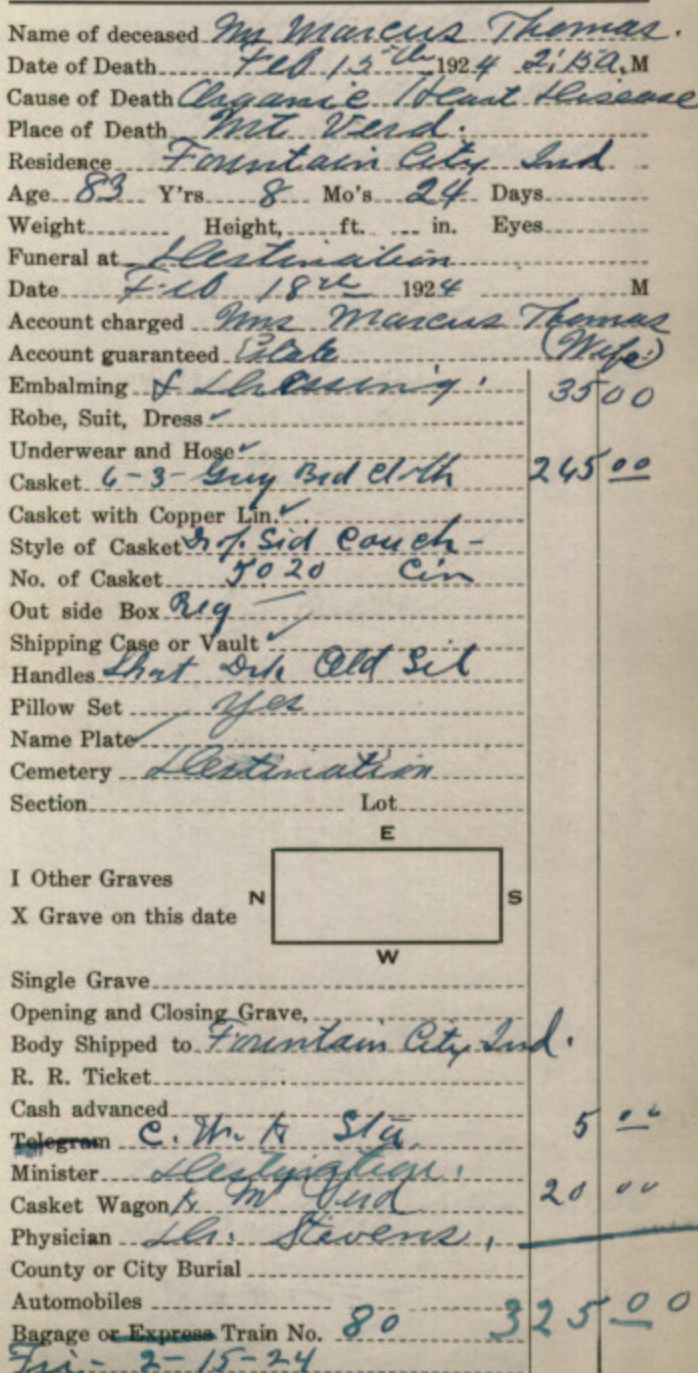 Name of deceased Mr Marcus Thomas.
Date of Death Feb 15th 1924 2:15 A.M
Cause of Death Organic Heart Disease
Place of Death Mt Verd.
Residence Fountain City Ind
Age 83 Y'rs 8 Mo's 24 Days
Weight Height, ft. in. Eyes
Funeral at Destination
Date Feb 18th 1924 M
Account charged Mrs Marcus Thomas
Account guaranteed Estate (Wife)
Embalming & Dressing. 35 00
Robe, Suit, Dress ✓
Underwear and Hose ✓
Casket 6-3- Grey Brd Cloth 265 00
Casket with Copper Lin. ✓
Style of Casket Drp. Sid Couch -
No. of Casket 5020 Cin
Out side Box Reg —
Shipping Case or Vault ✓
Handles Shrt Drk Old Sil
Pillow Set Yes
Name Plate ✓
Cemetery Destination
Section Lot
E
I Other Graves
N S
X Grave on this date
W
Single Grave
Opening and Closing Grave,
Body Shipped to Fountain City Ind.
R. R. Ticket
Cash advanced
Telegram C. W. to Sta. 5 00
Minister Destination.
Casket Wagon to Mt Verd 20 00
Physician Dr. Stevens.
County or City Burial
Automobiles
Bagage or Express Train No. 80 325 00
Fri - 2-15-24